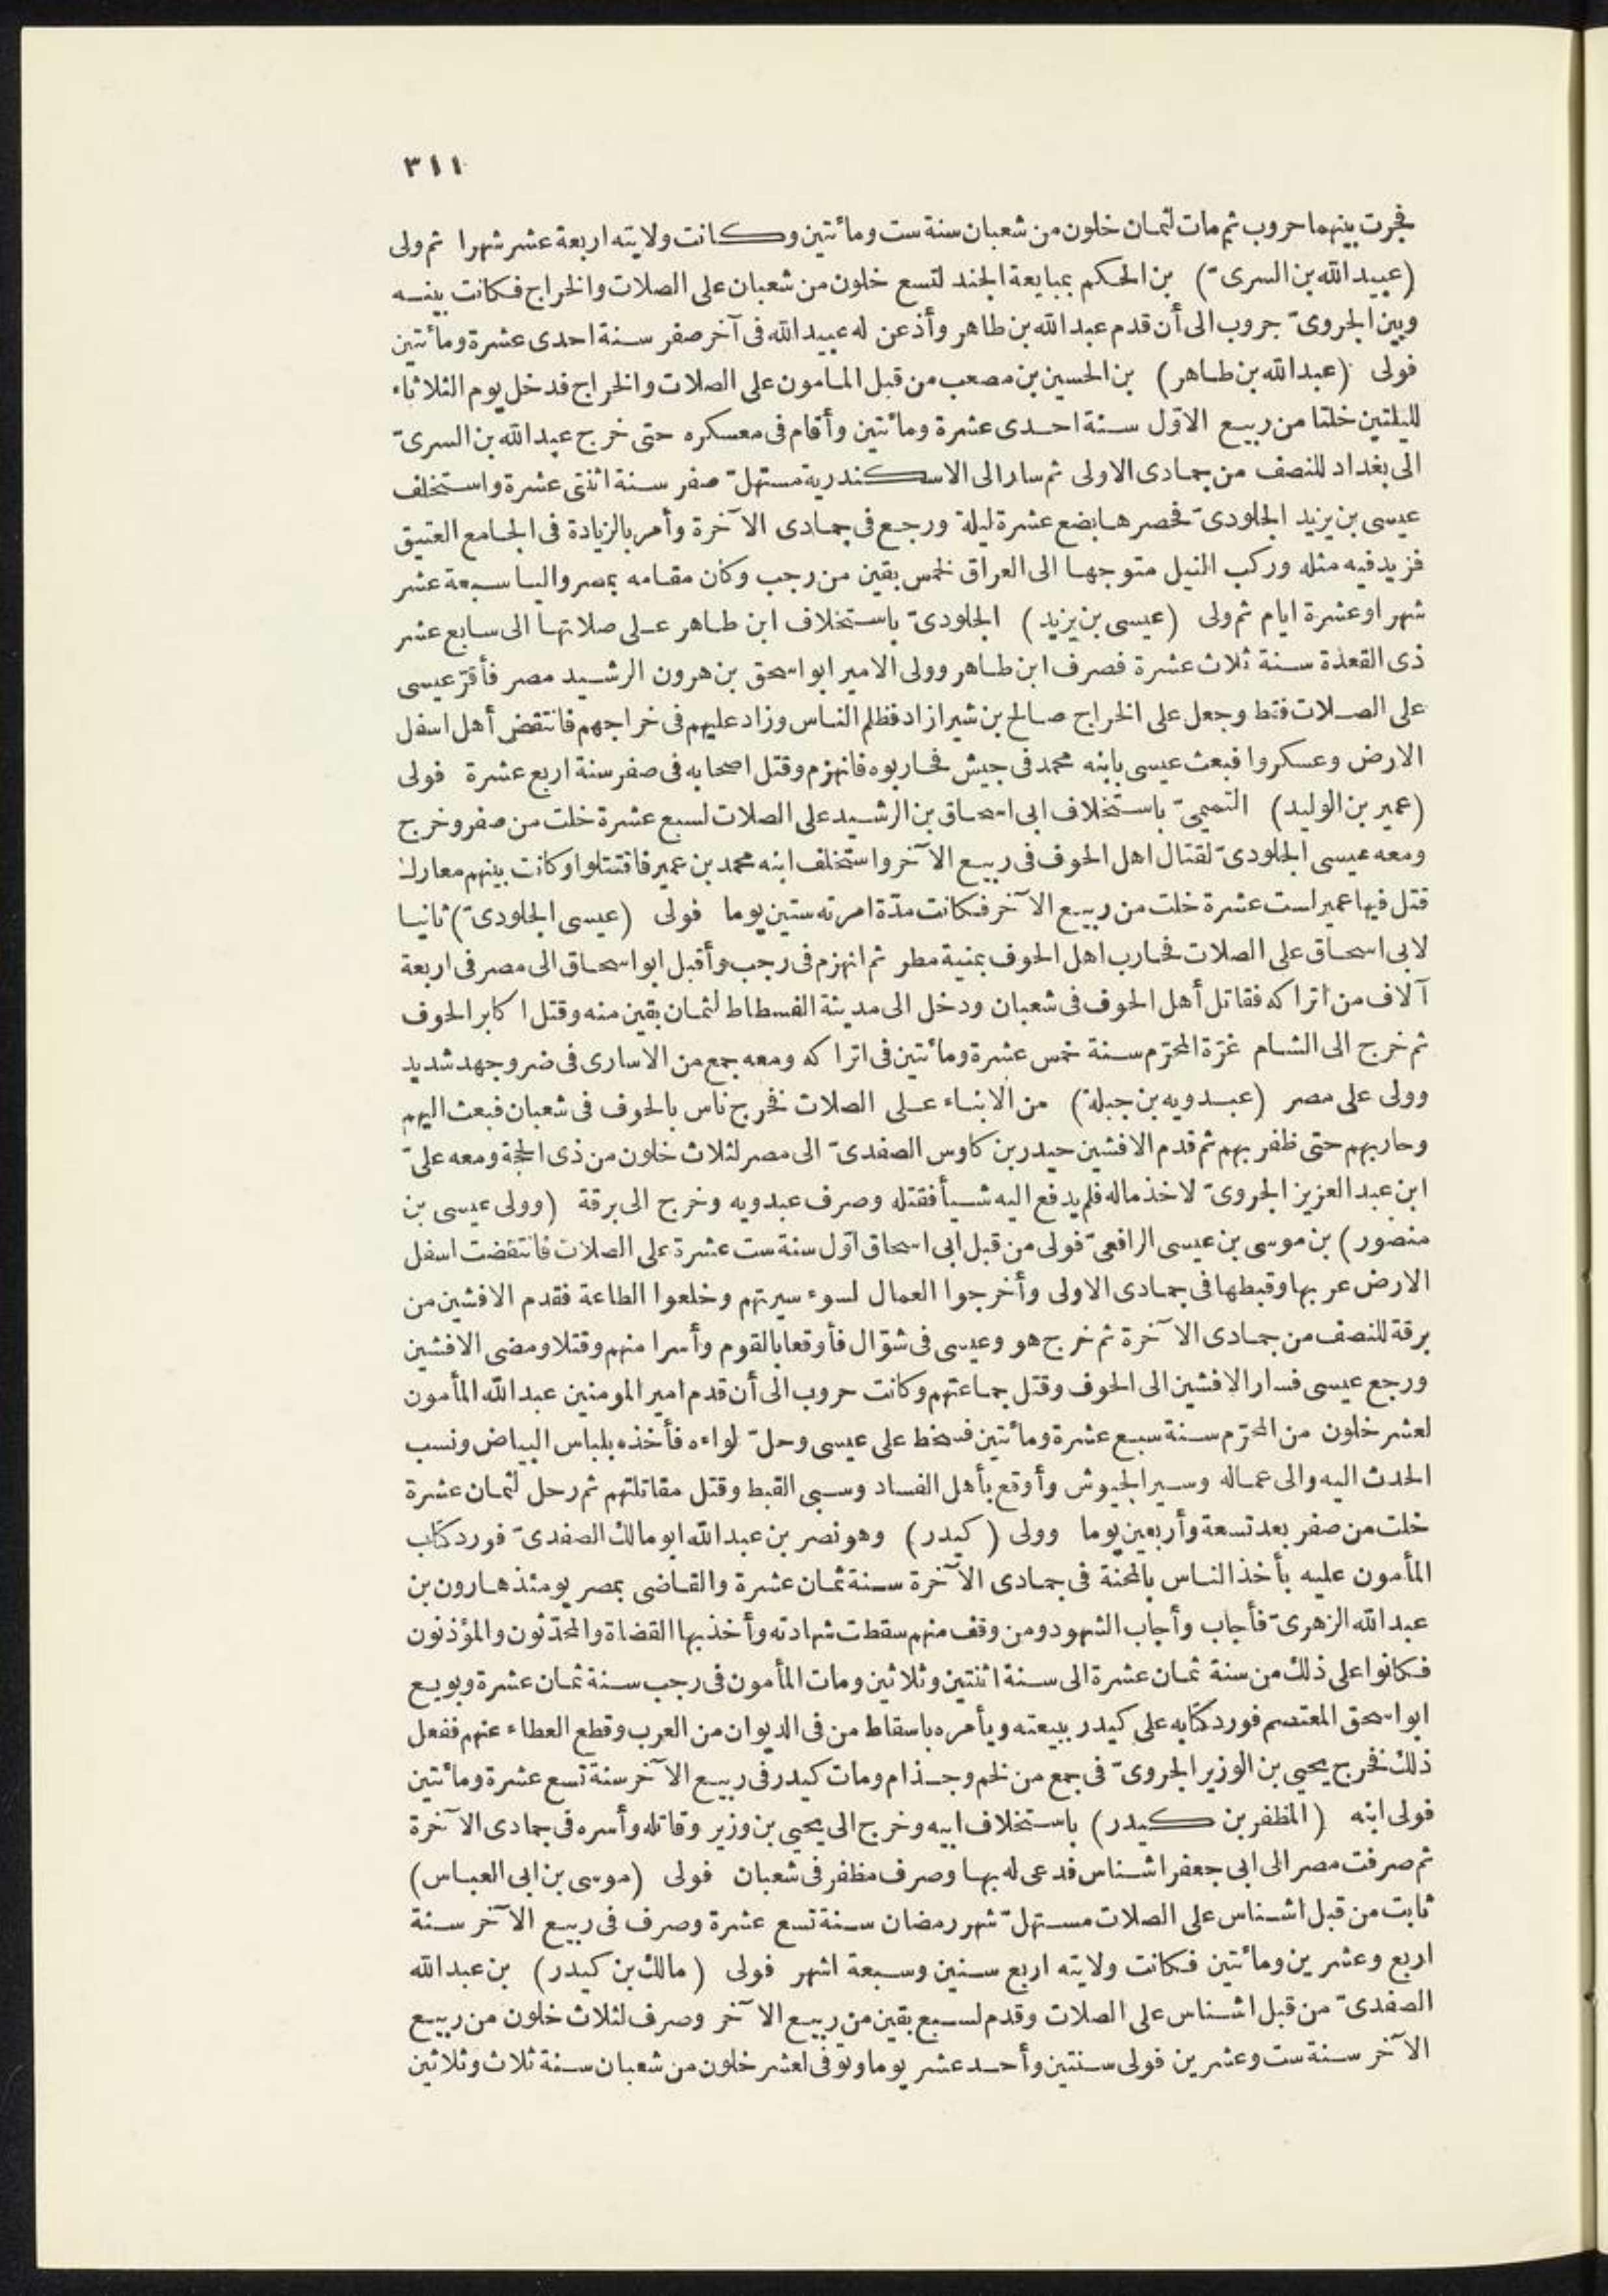 ٣١١
فجرت بينهما حروب ثم مات لثمان خلون من شعبان سنة ست ومائتين وكانت ولايته اربعة عشر شهرا ثم ولى
(عبيد الله بن السرىّ) بن الحكم بمبايعة الجند لتسع خلون من شعبان على الصلات والخراج فكانت بينه
وبين الجروىّ حروب الى أن قدم عبد الله بن طاهر وأذعن له عبيد الله فى آخر صفر سنة احدى عشرة ومائتين
فولى (عبد الله بن طاهر) بن الحسين بن مصعب من قبل المامون على الصلات والخراج فدخل يوم الثلاثاء
لليلتين خلتا من ربيع الاوّل سنة احدى عشرة ومائتين وأقام فى معسكره حتى خرج عبيد الله بن السرىّ
الى بغداد للنصف من جمادى الاولى ثم سار الى الاسكندرية مستهلّ صفر سنة اثنتى عشرة واستخلف
عيسى بن يزيد الجلودىّ فحصرها بضع عشرة ليلة ورجع فى جمادى الآخرة وأمر بالزيادة فى الجامع العتيق
فزيد فيه مثله وركب النيل متوجها الى العراق لخمس بقين من رجب وكان مقامه بمصر واليا سبعة عشر
شهرا وعشرة ايام ثم ولى (عيسى بن يزيد) الجلودىّ باستخلاف ابن طاهر على صلاتها الى سابع عشر
ذى القعدة سنة ثلاث عشرة فصرف ابن طاهر وولى الامير ابو اسحق بن هرون الرشيد مصر فأقرّ عيسى
على الصلات فقط وجعل على الخراج صالح بن شيرازاد فظلم الناس وزاد عليهم فى خراجهم فانتقض أهل اسفل
الارض وعسكروا فبعث عيسى بابنه محمد فى جيش فحاربوه فانهزم وقتل اصحابه فى صفر سنة اربع عشرة فولى
(عمير بن الوليد) التميمىّ باستخلاف ابى اسحاق بن الرشيد على الصلات لسبع عشرة خلت من صفر وخرج
ومعه عيسى الجلودىّ لقتال اهل الحوف فى ربيع الآخر واستخلف ابنه محمد بن عمير فاقتتلوا وكانت بينهم معارك
قتل فيها عمير لست عشرة خلت من ربيع الآخر فكانت مدّة امرته ستين يوما فولى (عيسى الجلودىّ) ثانيا
لابى اسحاق على الصلات فحارب اهل الحوف بمنية مطر ثم انهزم فى رجب وأقبل ابو اسحاق الى مصر فى اربعة
آلاف من اتراكه فقاتل أهل الحوف فى شعبان ودخل الى مدينة الفسطاط لثمان بقين منه وقتل اكابر الحوف
ثم خرج الى الشام غرّة المحرّم سنة خمس عشرة ومائتين فى اتراكه ومعه جمع من الاسارى فى ضر وجهد شديد
وولى على مصر (عبدويه بن جبلة) من الابناء على الصلات فخرج ناس بالحوف فى شعبان فبعث اليهم
وحاربهم حتى ظفر بهم ثم قدم الافشين حيدر بن كاوس الصفدىّ الى مصر لثلاث خلون من ذى الحجة ومعه علىّ
ابن عبد العزيز الجروىّ لاخذ ماله فلم يدفع اليه شيأ فقتله وصرف عبدويه وخرج الى برقة (وولى عيسى بن
منصور) بن موسى بن عيسى الرافعىّ فولى من قبل ابى اسحاق اوّل سنة ست عشرة على الصلات فانتقضت اسفل
الارض عربها وقبطها فى جمادى الاولى وأخرجوا العمال لسوء سيرتهم وخلعوا الطاعة فقدم الافشين من
برقة للنصف من جمادى الآخرة ثم خرج هو وعيسى فى شوّال فأوقعا بالقوم وأسرا منهم وقتلا ومضى الافشين
ورجع عيسى فسار الافشين الى الحوف وقتل جماعتهم وكانت حروب الى أن قدم امير المومنين عبد الله المأمون
لعشر خلون من المحرّم سنة سبع عشرة ومائتين فسخط على عيسى وحلّ لواءه فأخذه بلباس البياض ونسب
الحدث اليه والى عماله وسير الجيوش وأوقع بأهل الفساد وسبى القبط وقتل مقاتلتهم ثم رحل لثمان عشرة
خلت من صفر بعد تسعة وأربعين يوما وولى (كيدر) وهو نصر بن عبد الله ابو مالك الصفدىّ فورد كتاب
المأمون عليه بأخذ الناس بالمحنة فى جمادى الآخرة سنة ثمان عشرة والقاضى بمصر يومئذ هارون بن
عبد الله الزهرىّ فأجاب وأجاب الشهود ومن وقف منهم سقطت شهادته وأخذ بها القضاة والمحدّثون والمؤذنون
فكانوا على ذلك من سنة ثمان عشرة الى سنة اثنتين وثلاثين ومات المأمون فى رجب سنة ثمان عشرة وبويع
ابو اسحق المعتصم فورد كتابه على كيدر ببيعته ويأمره باسقاط من فى الديوان من العرب وقطع العطاء عنهم ففعل
ذلك فخرج يحيى بن الوزير الجروىّ فى جمع من لخم وجذام ومات كيدر فى ربيع الآخر سنة تسع عشرة ومائتين
فولى ابنه (المظفر بن كيدر) باستخلاف ابيه وخرج الى يحيى بن وزير وقاتله وأسره فى جمادى الآخرة
ثم صرفت مصر الى ابى جعفر اشناس فدعى له بها وصرف مظفر فى شعبان فولى (موسى بن ابى العباس)
ثابت من قبل اشناس على الصلات مستهلّ شهر رمضان سنة تسع عشرة وصرف فى ربيع الآخر سنة
اربع وعشرين ومائتين فكانت ولايته اربع سنين وسبعة اشهر فولى (مالك بن كيدر) بن عبد الله
الصفدىّ من قبل اشناس على الصلات وقدم لسبع بقين من ربيع الآخر وصرف لثلاث خلون من ربيع
الآخر سنة ست وعشرين فولى سنتين وأحد عشر يوما وتوفى لعشر خلون من شعبان سنة ثلاث وثلاثين